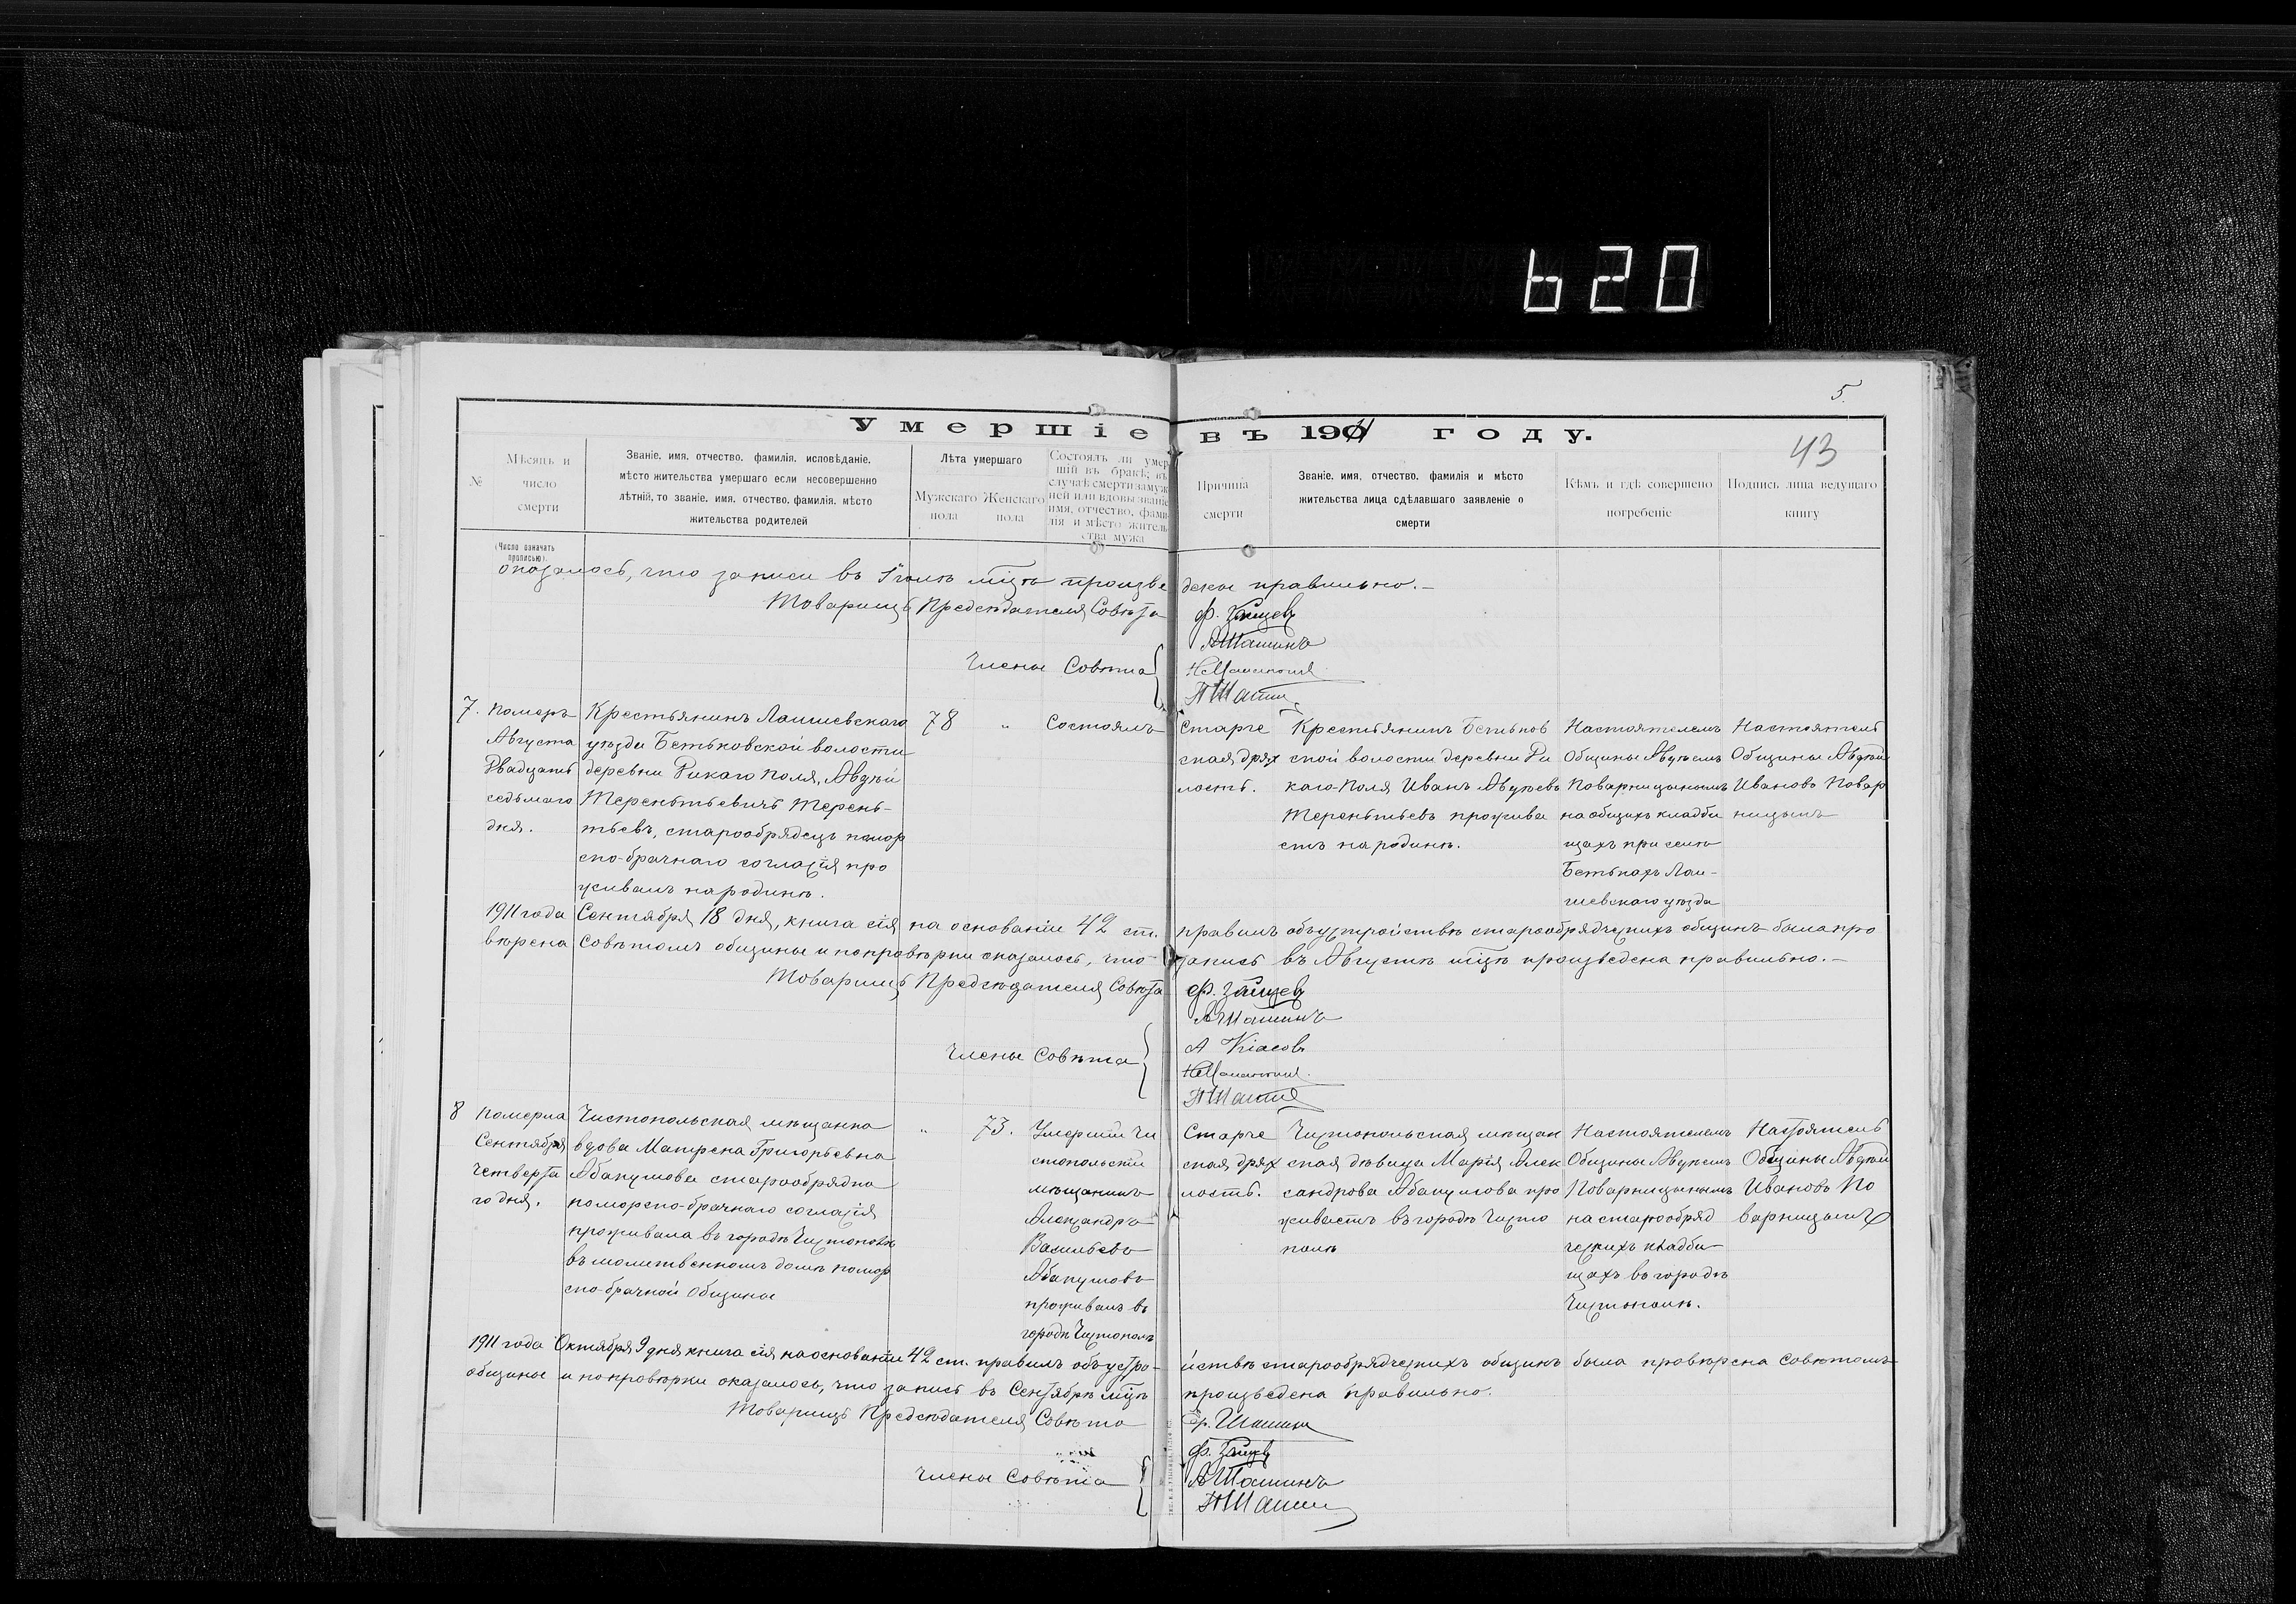 620
5.
43
Умершіе въ 1901 году.
№
Мѣсяцъ и число смерти
(Число означать прописью).
Званіе, имя, отчество, фамилія, исповѣданіе,
мѣсто жительства умершаго если несовершенно
лѣтній, то званіе, имя, отчество, фамилія, мѣсто
жительства родителей
Лѣта умершаго
Мужскаго пола
Женскаго пола
Состоялъ ли умер
шій въ бракѣ; въ
случаѣ смерти замуж
ней или вдовы званіе
имя, отчество, фами
лія и мѣсто житель
ства мужа
Причина смерти
Званіе, имя, отчество, фамилія и мѣсто
жительства лица сдѣлавшаго заявленіе о
смерти
Кѣмъ и гдѣ совершено
погребеніе
Подпись лица ведущаго
книгу
оказалось, что записи въ Іюлѣ мцѣ произве дены правильно.—
Товарищъ Предсѣдателя Совѣта Ф. Зайцев
АШашинъ
Члены Совѣта
ПШашин
7.
Померъ
Августа
Двадцать
седьмаго
дня.
Крестьянинъ Лаишевскаго
уѣзда Бетьковской волости
деревни Дикаго Поля, Авдѣй
Терентьевичъ Терень-
тьевъ, старообрядецъ помор
ско-брачнаго согласія про
живалъ народинѣ.
78
"
Состоялъ
Старче
ская дрях
лость.
Крестьянинъ Бетьков
ской волости деревни Ди
каго-Поля Иванъ Авдѣевъ
Терентьевъ прожива
етъ народинѣ.
Настоятелемъ
Общины Авдѣемъ
Поварницынымъ
на общихъ кладби
щахъ при селѣ
Бетькахъ Лаи-
шевскаго уѣзда
Настоятель
Общины Авдѣй
Ивановъ Повар
ницынъ
1911 года Сентября 18 дня, книга сія на основаніи 42 ст. правилъ объ устройствѣ старообрядческихъ общинъ была про
вѣрена Совѣтомъ общины и по провѣрки оказалось, что запись въ Августѣ мцѣ произведена правильно.—
Товарищъ Предсѣдателя Совѣта Ф. Зайцев
АШашинъ
Члены Совѣта
А Кіасовъ
ПШашин
8
Померла
Сентября
Четверта
го дня.
Чистопольская мѣщанка
вдова Матрена Григорьевна
Абакумова старообрядка
поморско-брачнаго согласія
проживала въ городѣ Чистополѣ
въ молитвенномъ домѣ помор
ско-брачной общины
"
73.
Умершій Чи
стопольскій
мѣщанинъ
Александръ
Васильевъ
Абакумовъ
проживалъ въ
городѣ Чистополѣ
Старче
ская дрях
лость.
Чистопольская мѣщан
ская дѣвица Марія Алек
сандрова Абакумова про
живаетъ въ городѣ Чисто
полѣ
Настоятелемъ
Общины Авдѣемъ
Поварницынымъ
на старообряд
ческихъ кладби
щахъ въ городѣ
Чистополѣ.
Настоятель
Общины Авдѣй
Ивановъ По
варницынъ
1911 года Октября 9 дня книга сія на основаніи 42 ст. правилъ объ устро- йствѣ старообрядческихъ общинъ была провѣрена Совѣтомъ
общины и по провѣрки оказалось, что запись въ Сентябрѣ мцѣ произведена правильно.
Товарищъ Предсѣдателя Совѣта Гр. Шашин
Ф. Зайцев
Члены Совѣта АШашинъ
ПШашин